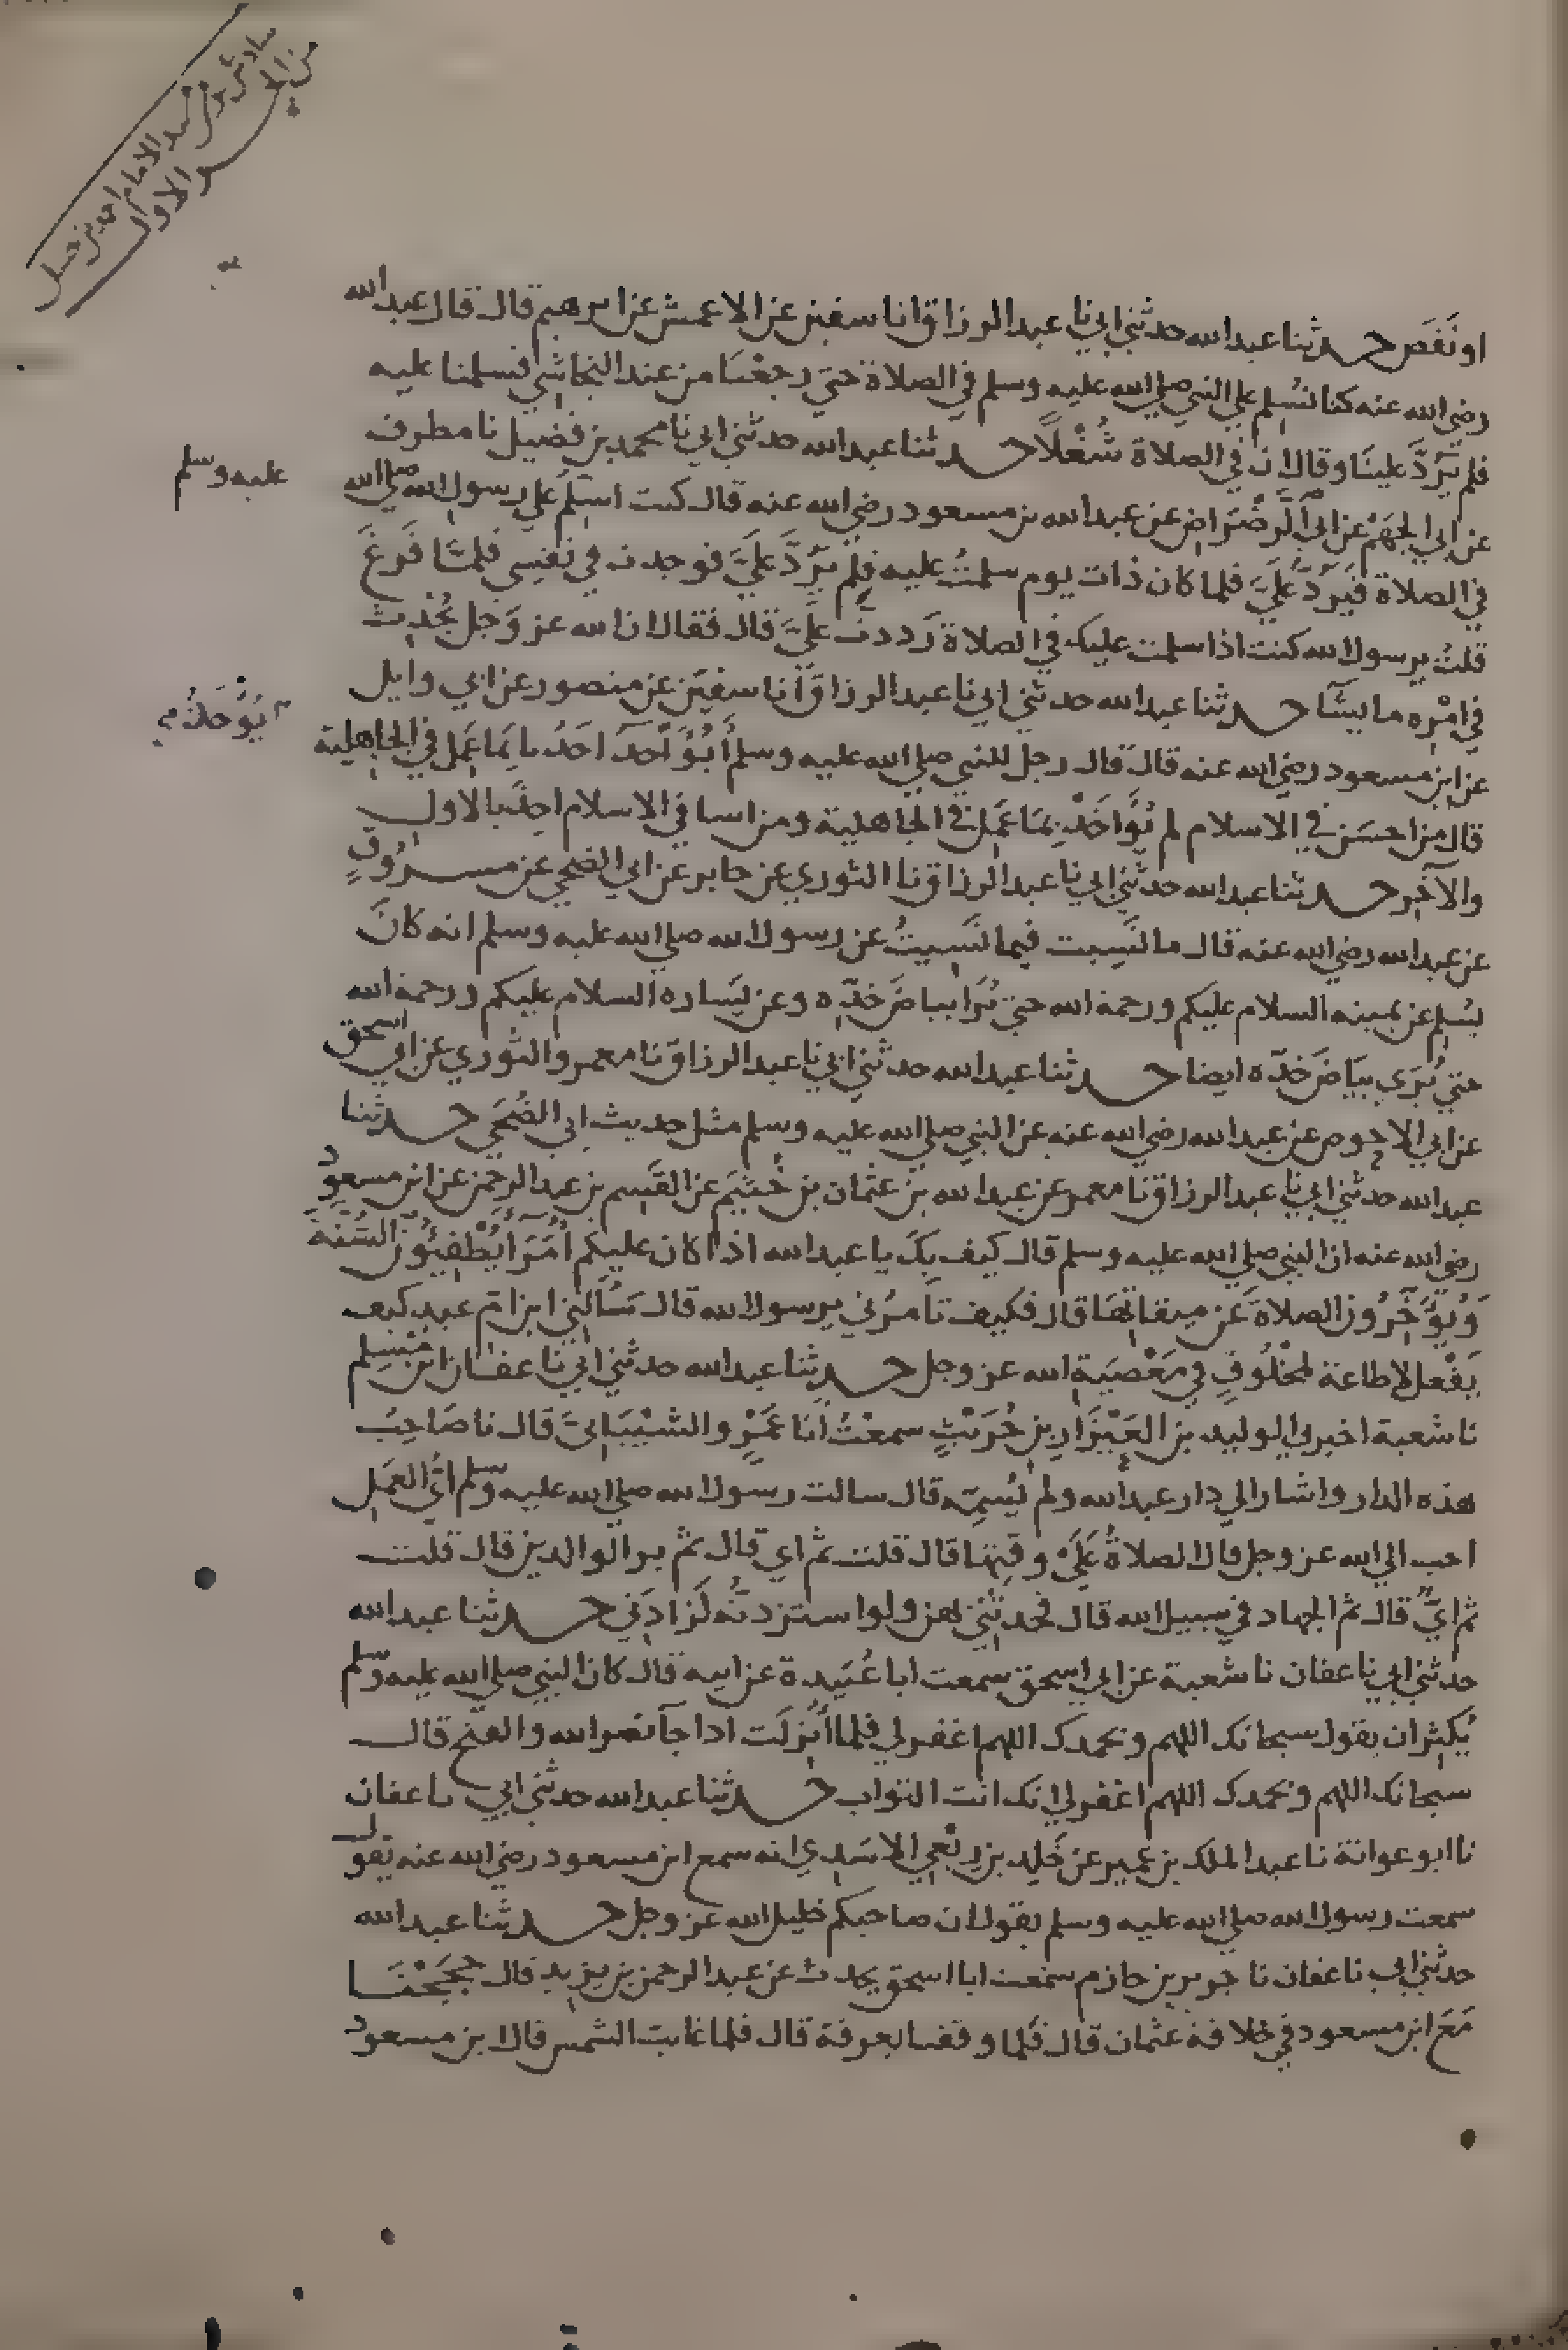 من الجزو الاول
سادس من مسند الامام احمد بن حنبل
او نَقَصَ حدثنا عبدالله حدثني ابي نا عبدالرزاق انا سفين عن الاعمش عن ابرهيم قال قال عبدالله
رضي الله عنه كنا نُسلم علي النبي صلي الله عليه وسلم في الصلاة حتي رجعنا من عند النجاشي فسلمنا عليه
فلم يَرُدَّ علينا وقال ان في الصلاة شُغْلاً حدثنا عبدالله حدثني ابي نا محمد بن فضيل نا مطرف
عن ابي الجهم عن ابي الرضراض عن عبدالله بن مسعود رضي الله عنه قال كنت اسلم علي رسول الله صلي الله
عليه وسلم
في الصلاة فيَرُدُّ عليَّ فلما كان ذات يوم سلمتُ عليه فلم يَرُدَّ عليَّ فوجدت في نفسي فلما فَرغَ
قلتُ يرسول الله كنت اذا سلمت عليك في الصلاة رَددتَ عليَّ قال فقال ان الله عز وَجل يُحْدِث
في امْرِه ما يشَآ حدثنا عبدالله حدثني ابي نا عبدالرزاق انا سفين عن منصور عن ابي وايل
عن ابن مسعود رضي الله عنه قال قال رجل للنبي صلي الله عليه وسلم أيُؤَاخَذُ احَدُنا بِمَا عَمِل في الجاهلية
يُؤْخَذُ
قال من احسَن في الاسلام لم يُؤَاخَذْ بِمَا عَمِل في الجاهلية ومن اسا في الاسلام اخِذَ بالاول
والآخِر حدثنا عبدالله حدثني ابي نا عبدالرزاق نا الثوري عن جابر عن ابي الضحي عن مسروقٍ
عن عبدالله رضي الله عنه قال ما نَسِيت فيما نَسِيتُ عن رسول الله صلي الله عليه وسلم انه كانَ
يسُلم عن يمينه السلام عليكم ورحمة الله حتي نُرَا بياضَ خَدّه وعن يَسَاره السلام عليكم ورحمة الله
حتي يُرَي بيَاضَ خَدّه ايضا حدثنا عبدالله حدثني ابي نا عبدالرزاق نا معمر والثوري عن ابي اسحق
عن ابي الاحوص عن عبدالله رضي الله عنه عن النبي صلي الله عليه وسلم مثل حديث ابي الضُحَي حدثنا
عبدالله حدثني ابي نا عبدالرزاق نا معمر عن عبدالله بن عثمان بن خُثَيم عن القسم بن عبدالرحمن عن ابن مسعود
رضي الله عنه ان النبي صلي الله عليه وسلم قال كيف بِكَ يا عبدالله اذا كان عليكم أُمَرآ يُطْفِئُون السُنّةَ
وَيُؤَخِّرُون الصلاة عَن ميقاتِهَا قال فكيف تأمُرُني يرسول الله قال تسَألني ابن ام عبد كيف
يَفْعل لا طاعة لمخْلُوقٍ في مَعْصيَةِ الله عز وجل حدثنا عبدالله حدثني ابي نا عفان ابن مُسْلم
نا شعبة اخبرني الوليد بن العَيْزَار بن حُرَيْثٍ سمعْتُ أبَا عَمْرٍو الشيْبَانيَّ قال نا صَاحِبُ
هذه الدار واشار الي دار عبدالله ولم يُسَمِّه قال سالت رسول الله صلي الله عليه وسلم ايُّ العَمَل
احب الي الله عز وجل قال الصلاةُ عَلَيْ وقتِهَا قال قلت ثم اي قال ثم بر الوالدين قال قلت
ثم ايٌّ قال ثم الجهاد في سبيل الله قال فحدثَني بهن ولو استزدتُه لَزَادَني حدثنا عبدالله
حدثني ابي نا عفان نا شعبة عن ابي اسحق سمعت ابا عُبَيدة عن ابيه قال كان النبي صلي الله عليه وسلم
يُكثِرُ ان يقول سبحانك اللهم وبحمدك اللهم اغفر لي فلما أُنزلَت اذا جآ نصر الله والفتح قال
سبحانك اللهم وبحمدك اللهم اغفر لي انك انت التواب حدثنا عبدالله حدثني ابي نا عفان
نا ابو عوانة نا عبدالملك بن عمير عن خَلِد بن رِبْعي الاسَدي انه سمع ابن مسعود رضي الله عنه يقول
سمعت رسول الله صلي الله عليه وسلم يقول ان صاحبكم خليل الله عز وجل حدثنا عبدالله
حدثني ابي نا عفان نا جرير بن حازم سمعت ابا اسحق يحدث عن عبدالرحمن بن يزيد قال حَجَجْنَا
مَعَ ابن مسعود في خلافة عثمان قال فَلما وقفنا بعرفة قال فلما غابت الشمس قال ابن مسعود